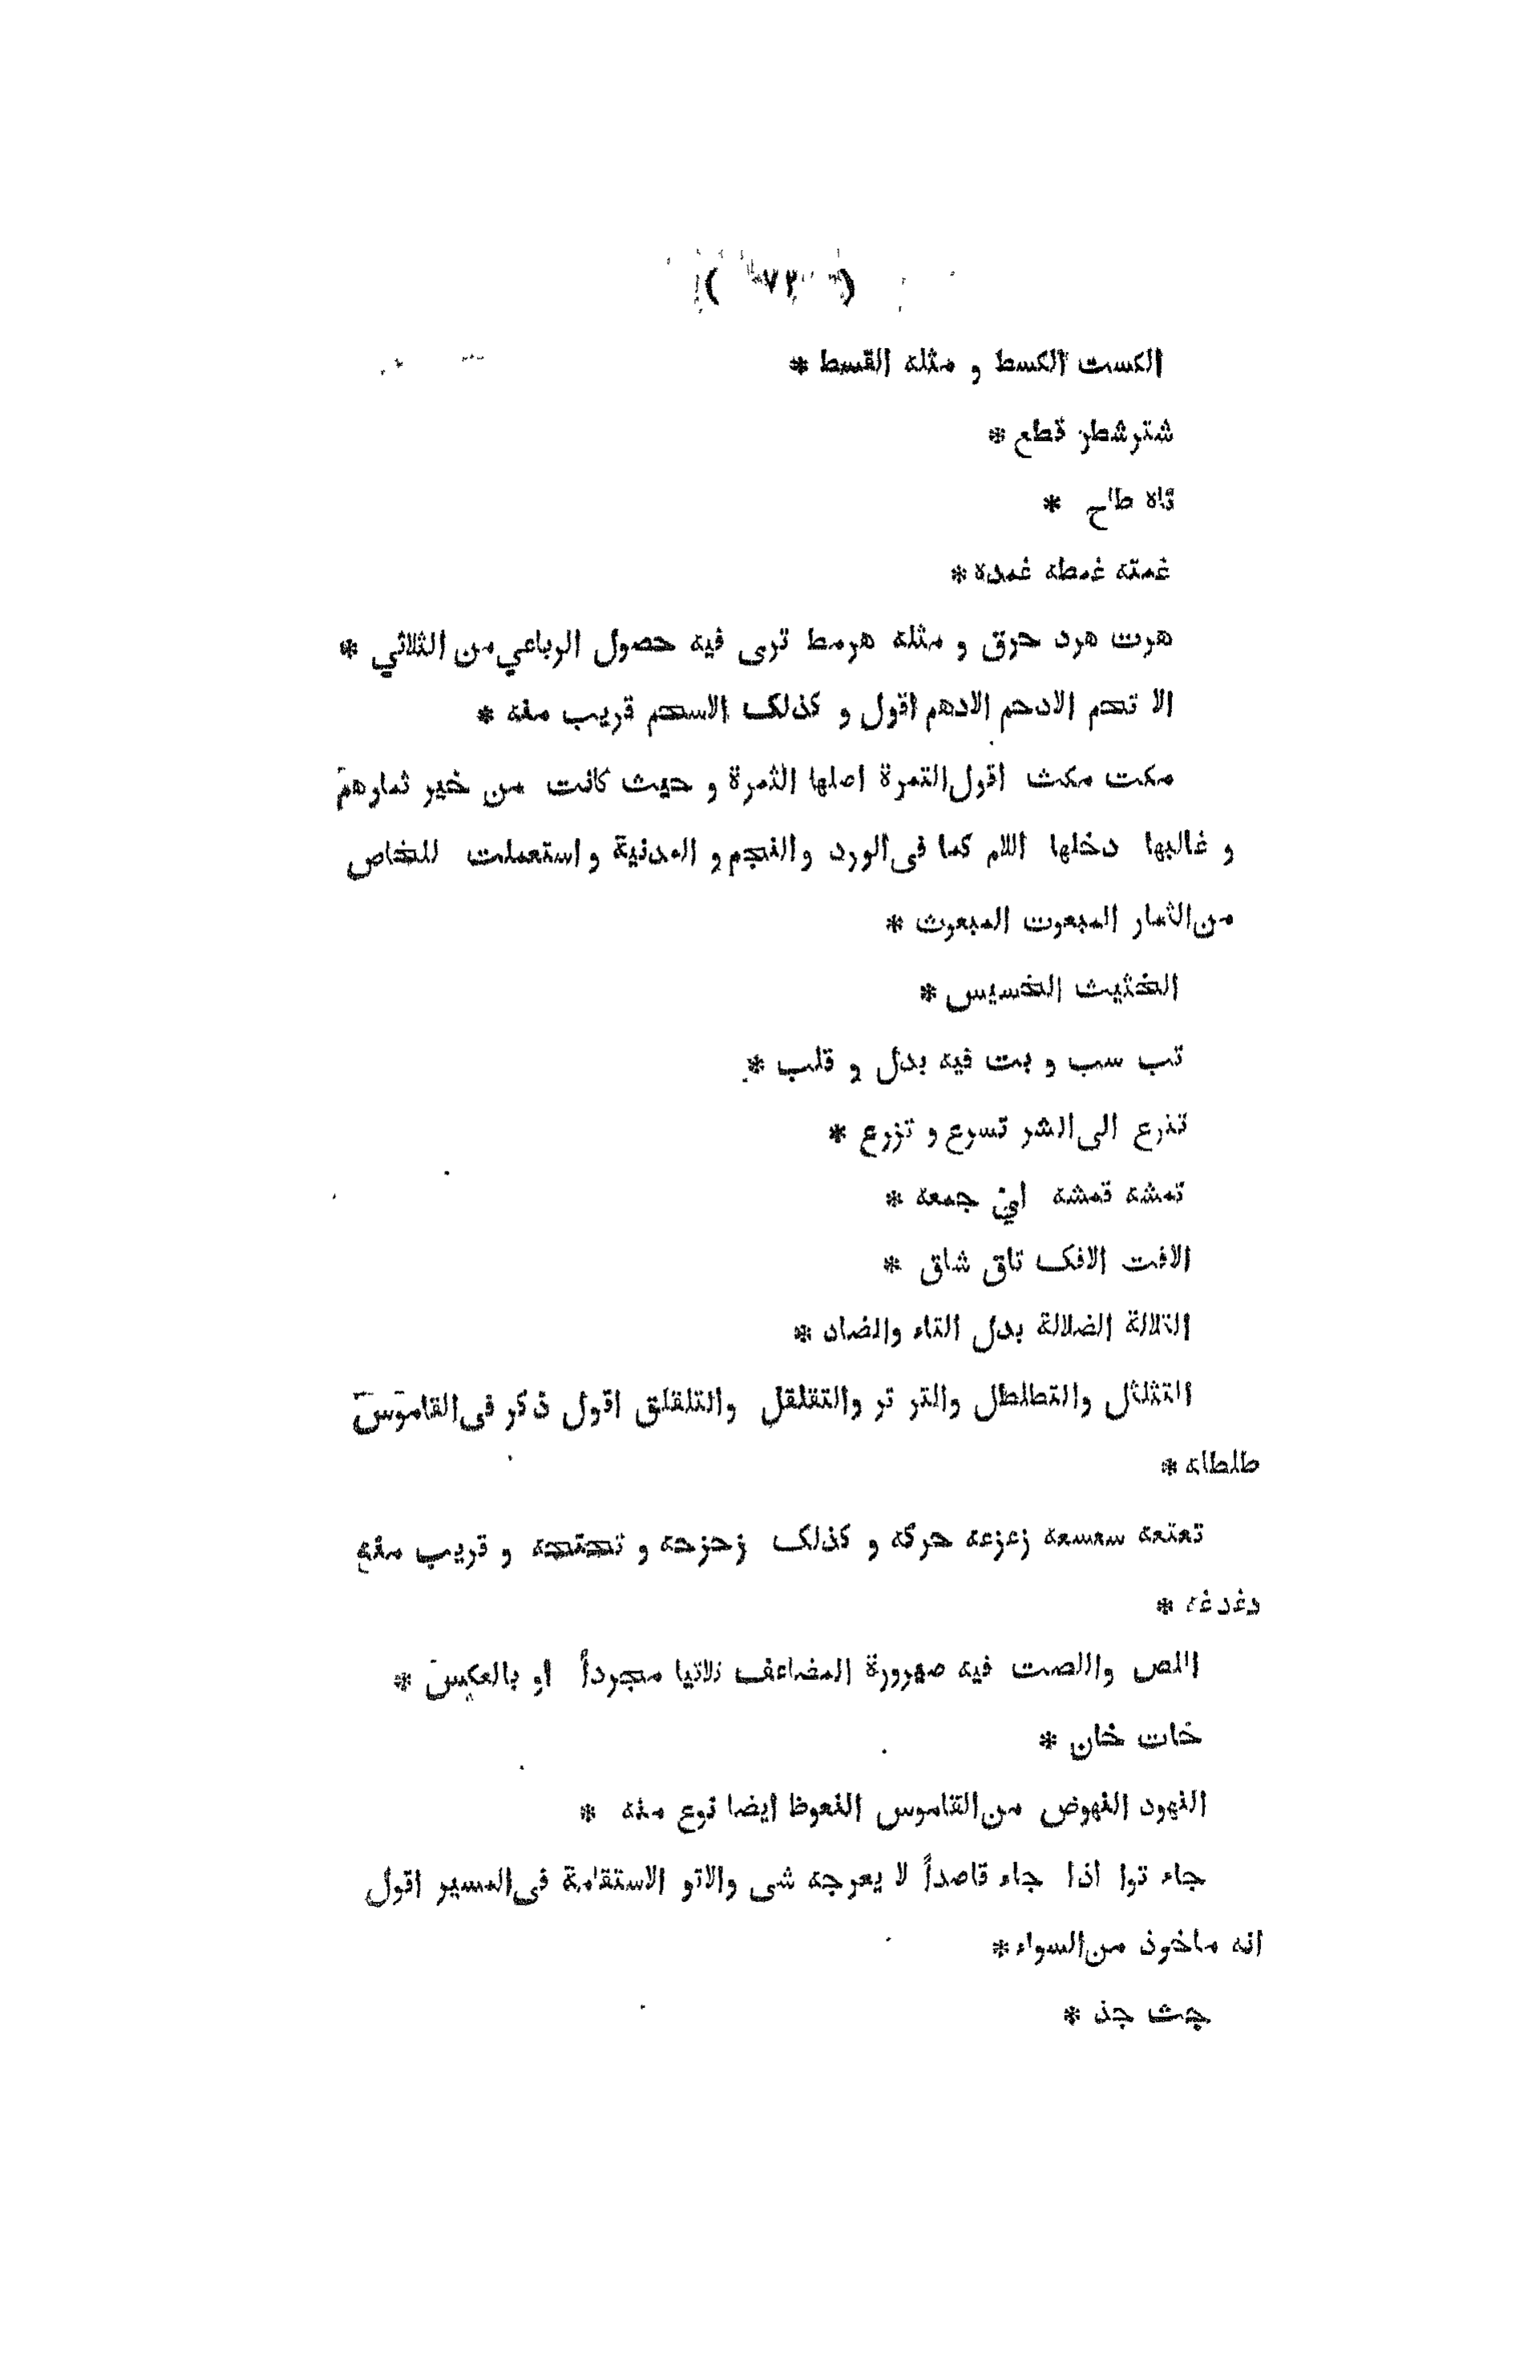 ( ٧٢ )
الكست الكسط و مثله القسط *
شتر شطر قطع *
تاه طاح *
غمته غمطه غمده *
هرت هرد حرق و مثله هرمط ترى فيه حصول الرباعي من الثلاثي *
الا تحم الادحم الادهم اقول و كذلك الاسحم قريب منه *
مكت مكث اقول التمرة اصلها الثمرة و حيث كانت من خير ثمارهم
و غالبها دخلها اللام كما فى الورد والنجم و المدنية و استعملت للخاص
من الثمار المبعوت المبعوث *
الختيت الخسيس *
تب سب و بت فيه بدل و قلب *
تذرع الى الشر تسرع و تزرع *
تمشه قمشه اي جمعه *
الافت الافك تاق شاق *
التلالة الضلالة بدل التاء والضاد *
التثلثل والتطلطل والتر تر والتقلقل والتلقلق اقول ذكر فى القاموس
طلطله *
تعتعه سعسعه زعزعه حركه و كذلك زحزحه و تحتحه و قريب منه
دغدغه *
اللص واللصت فيه صيرورة المضاعف ثلاثيا مجرداً او بالعكس *
خات خان *
النهود النهوض من القاموس النعوظ ايضا نوع منه *
جاء توا اذا جاء قاصداً لا يعرجه شى والاتو الاستقامة فى المسير اقول
انه ماخوذ من السواء *
جث جذ *